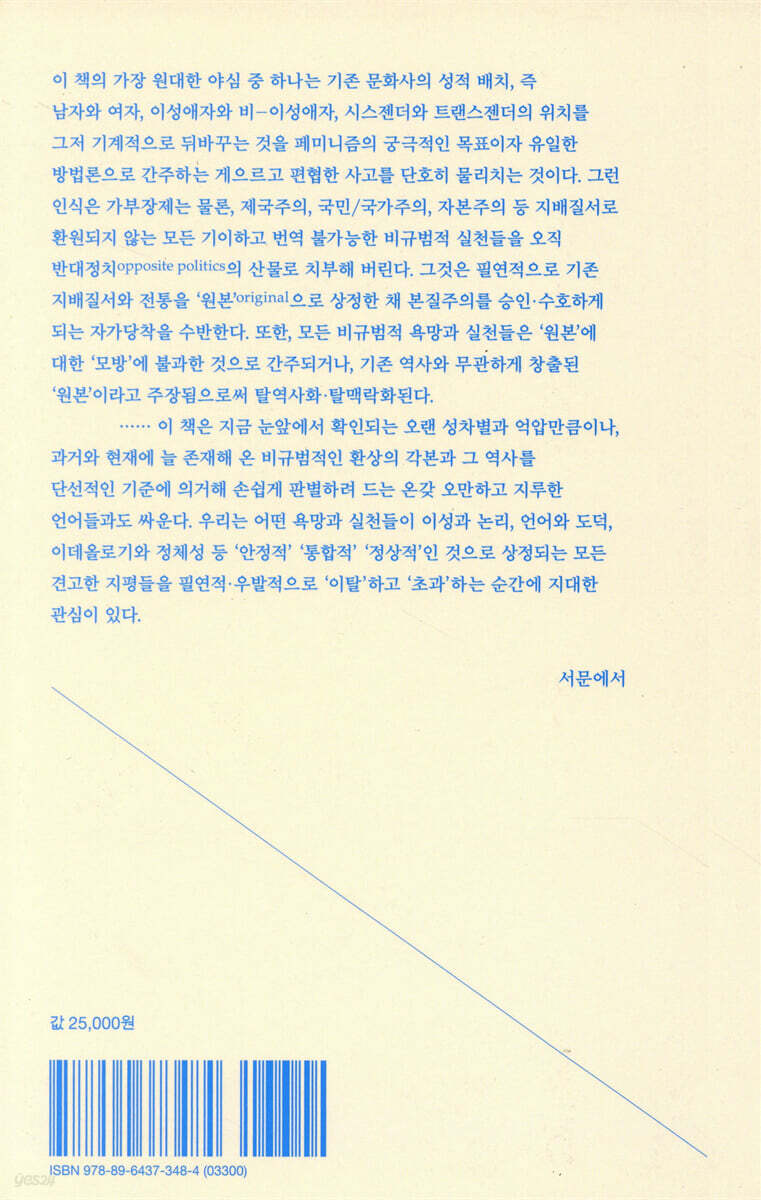 이 책의 가장 원대한 야심 중 하나는 기존 문화사의 성적 배치, 즉
남자와 여자, 이성애자와 비–이성애자, 시스젠더와 트랜스젠더의 위치를
그저 기계적으로 뒤바꾸는 것을 페미니즘의 궁극적인 목표이자 유일한
방법론으로 간주하는 게으르고 편협한 사고를 단호히 물리치는 것이다. 그런
인식은 가부장제는 물론, 제국주의, 국민/국가주의, 자본주의 등 지배질서로
환원되지 않는 모든 기이하고 번역 불가능한 비규범적 실천들을 오직
반대정치opposite politics의 산물로 치부해 버린다. 그것은 필연적으로 기존
지배질서와 전통을 ‘원본’original으로 상정한 채 본질주의를 승인·수호하게
되는 자가당착을 수반한다. 또한, 모든 비규범적 욕망과 실천들은 ‘원본’에
대한 ‘모방’에 불과한 것으로 간주되거나, 기존 역사와 무관하게 창출된
‘원본’이라고 주장됨으로써 탈역사화·탈맥락화된다.
…… 이 책은 지금 눈앞에서 확인되는 오랜 성차별과 억압만큼이나,
과거와 현재에 늘 존재해 온 비규범적인 환상의 각본과 그 역사를
단선적인 기준에 의거해 손쉽게 판별하려 드는 온갖 오만하고 지루한
언어들과도 싸운다. 우리는 어떤 욕망과 실천들이 이성과 논리, 언어와 도덕,
이데올로기와 정체성 등 ‘안정적’ ‘통합적’ ‘정상적’인 것으로 상정되는 모든
견고한 지평들을 필연적·우발적으로 ‘이탈’하고 ‘초과’하는 순간에 지대한
관심이 있다.
서문에서
값 25,000원
ISBN 978-89-6437-348-4 (03300)
yes24